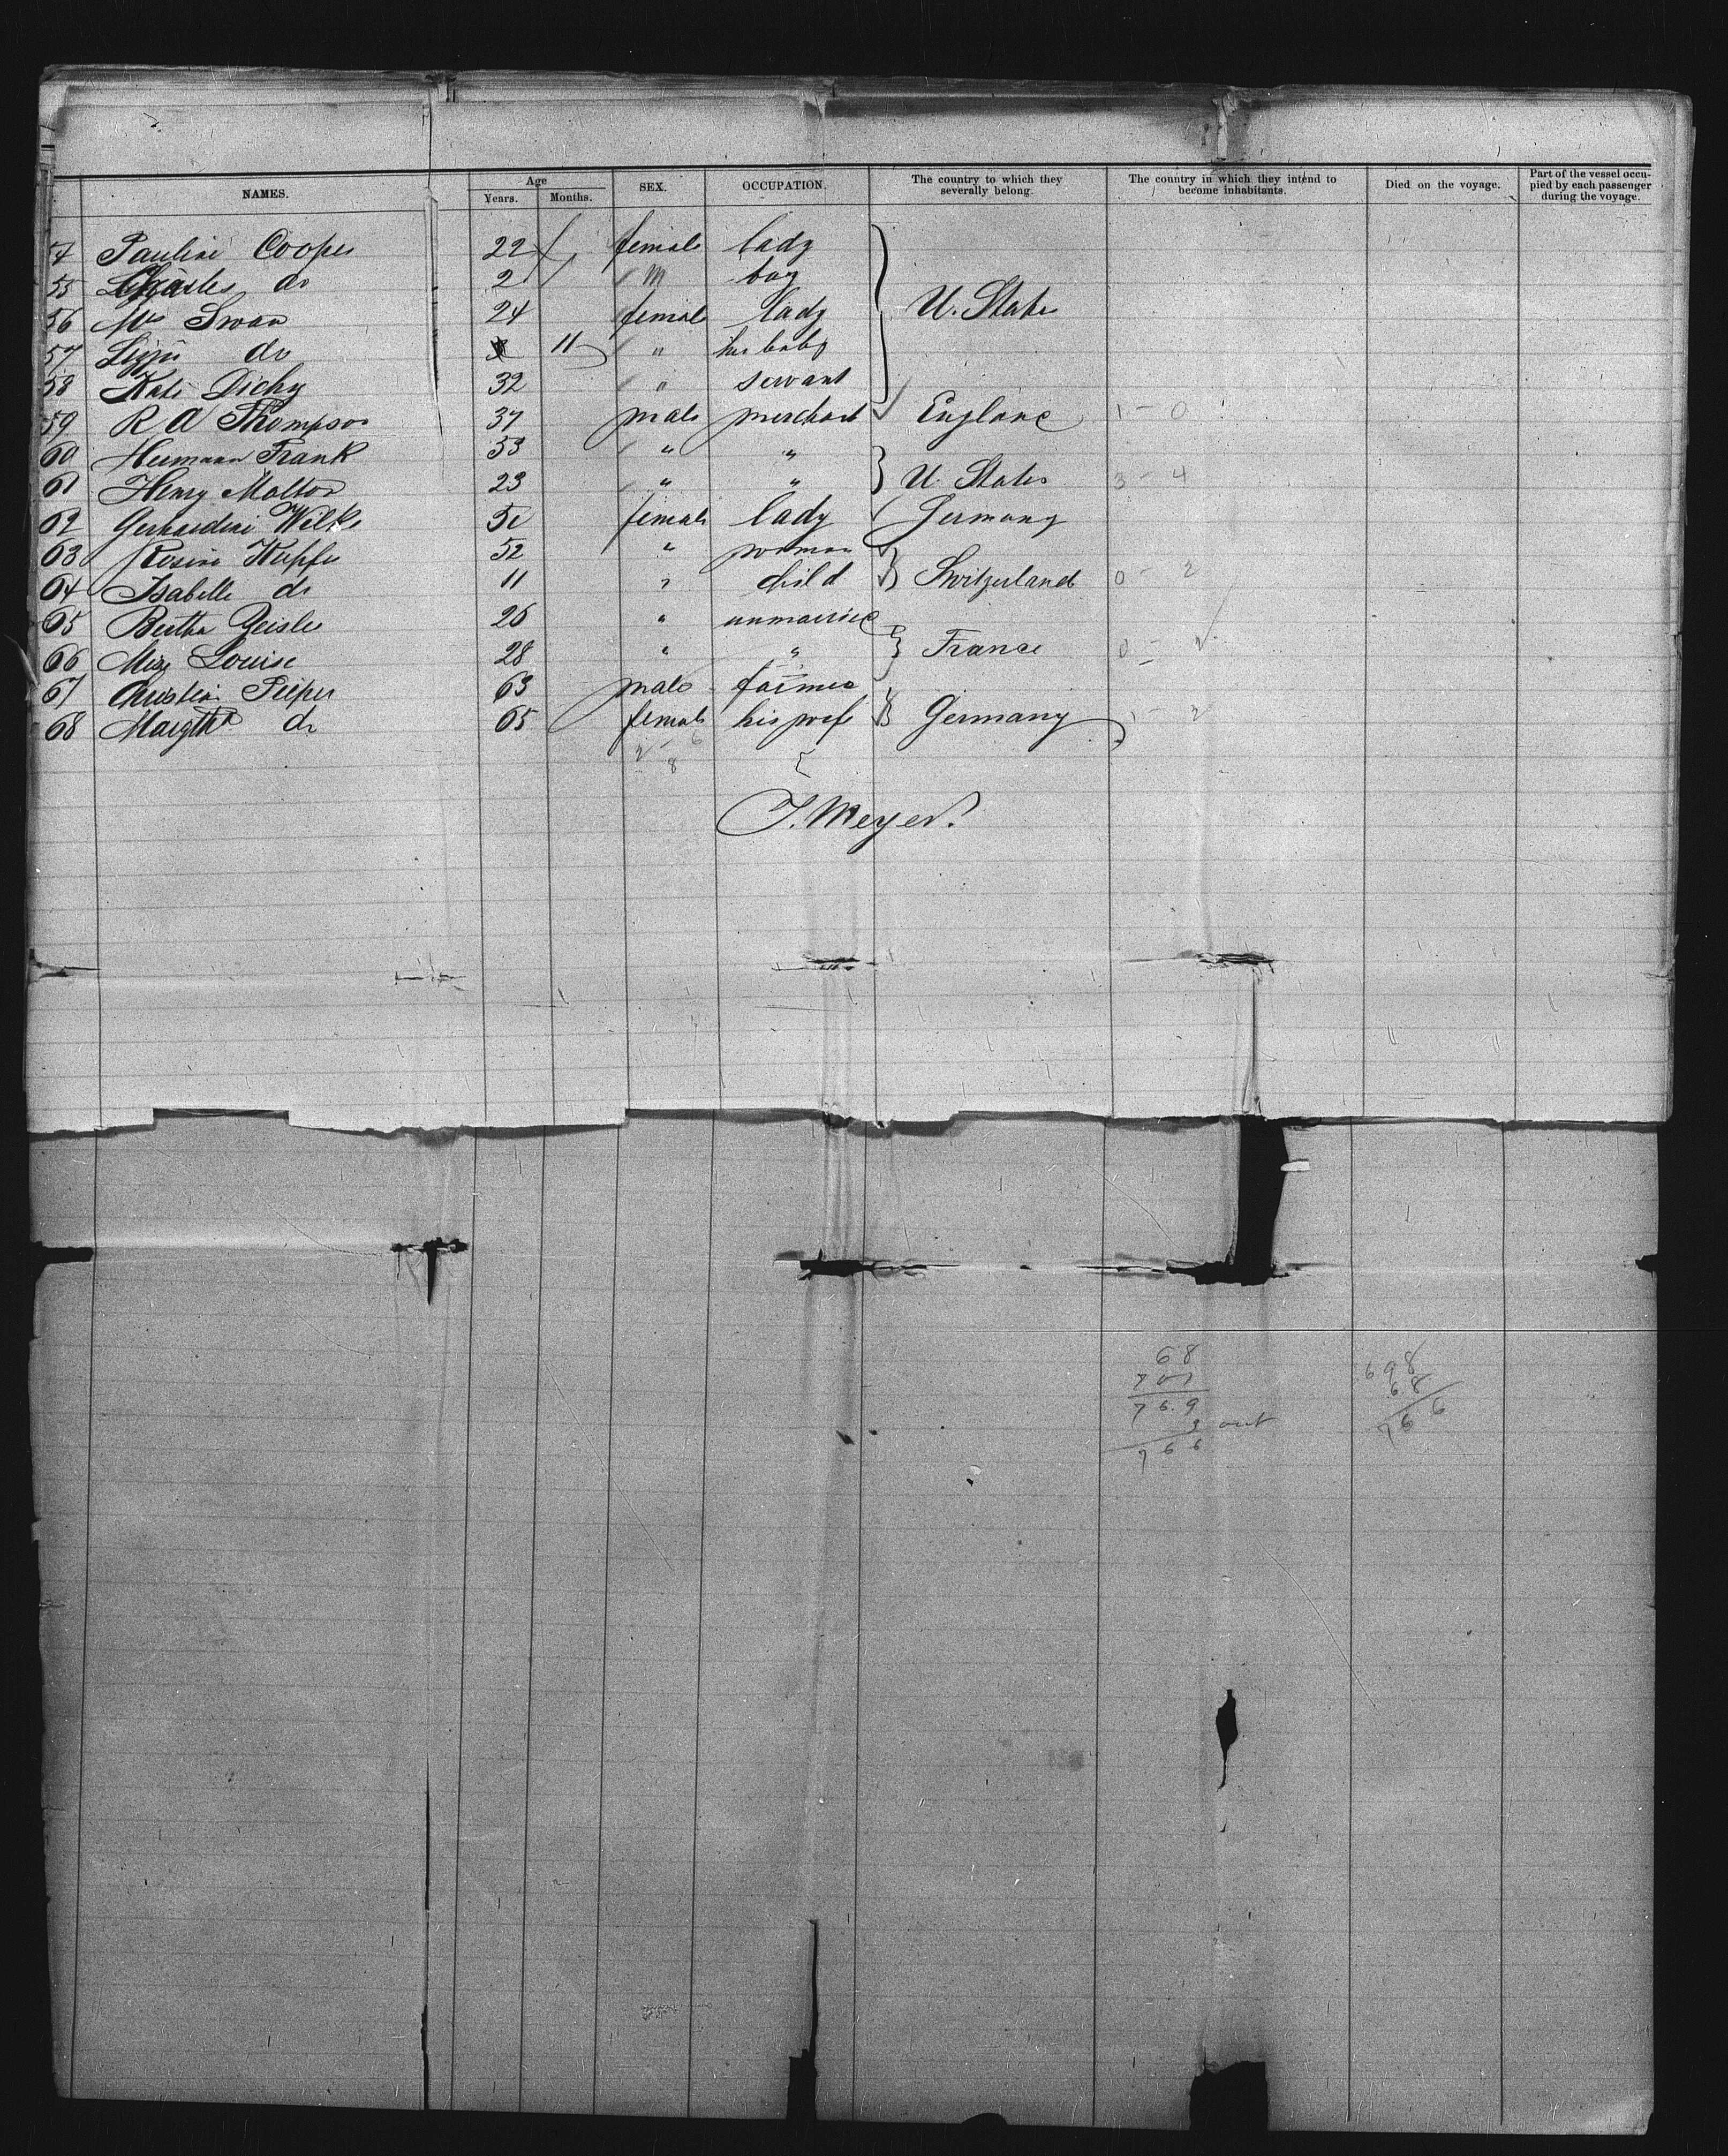 NAMES. Age Years. Months. SEX. OCCUPATION. The country to which they severally belong. The country in which they intend to become inhabitants. Died on the voyage. Part of the vessel occupied by each passenger during the voyage.
54 Pauline Cooper 22 female lady
55 Charles do 2 m boy
56 Mrs Swan 24 female lady U. States
57 Lizzie do 11 " her baby
58 Kate Dichy 32 " servant
59 R A Thompson 37 male merchant England 1 - 0
60 Hermann Frank 53 " "
61 Henry Moltor 23 " " U. States 3 - 4
62 Gerhardini Wilke female lady Germany
63 Rosine Kupfe 52 " woman
64 Isabelle do 11 " child Switzerland 0 - 2
65 Bertha Geisler 26 " unmarried
66 Miss Louise 28 " " France 0 - 2
67 Christian Pieper 63 male farmer
68 Margth do 65 female his wife Germany 1 - 2
2 - 6
8
J. Meyer.
68
701
769
3 out
766
698
68
766